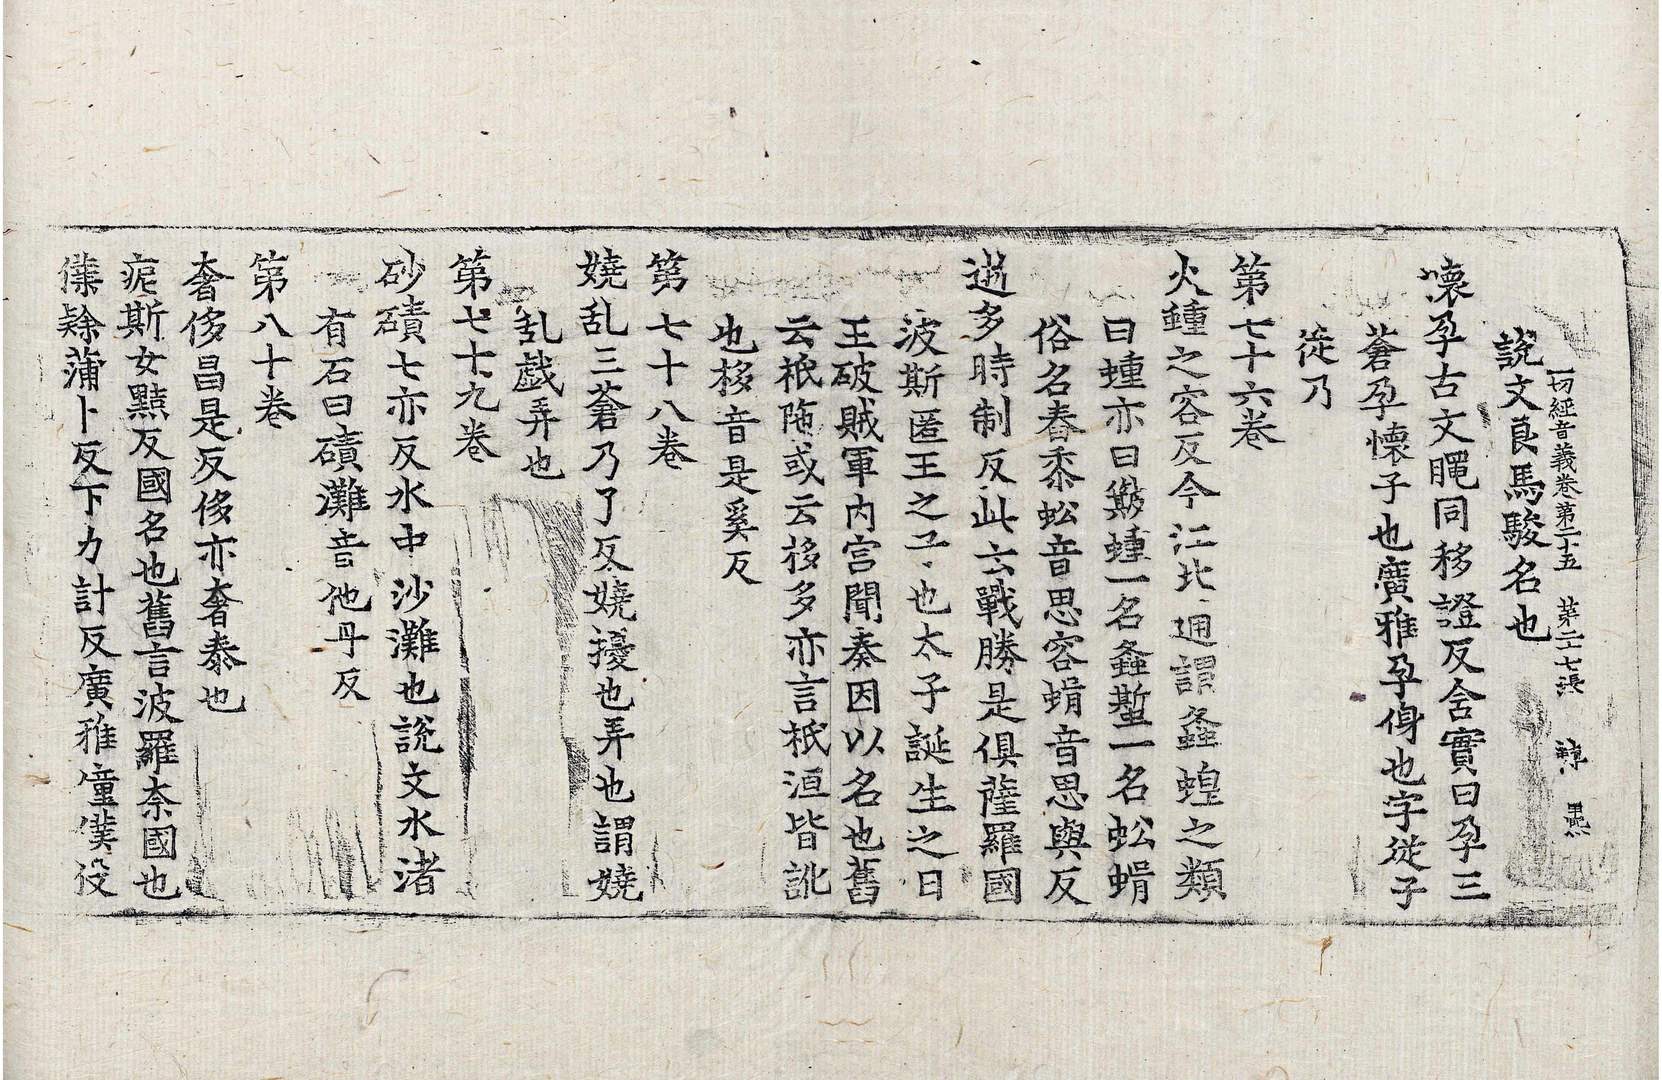 說文良馬駿名也
一切經音義卷第二十五　第二十七張
懷孕古文䏰同移證反含實曰孕三
蒼孕懷子也廣雅孕㑗也字從子
從乃
第七十六卷
火𧑄之容反今江北通謂螽蝗之類
曰𧑄亦曰簸𧑄一名螽蜤一名蚣蝑
俗名舂黍蚣音思容蝑音思與反
逝多時制反此云戰勝是俱薩羅國
波斯匿王之子也太子誕生之日
王破賊軍內宮聞奏因以名也舊
云祇陁或云移多亦言祇洹皆訛
也栘音是奚反
第七十八卷
嬈乱三蒼乃了反嬈擾也弄也謂嬈
乱戲弄也
第七十九卷
砂磧七亦反水中沙灘也說文水渚
有石曰磧灘音他丹反
第八十卷
奢侈昌是反侈亦奢泰也
痆斯女黠反國名也舊言波羅奈國也
僕隸蒲卜反下力計反廣雅僮僕役